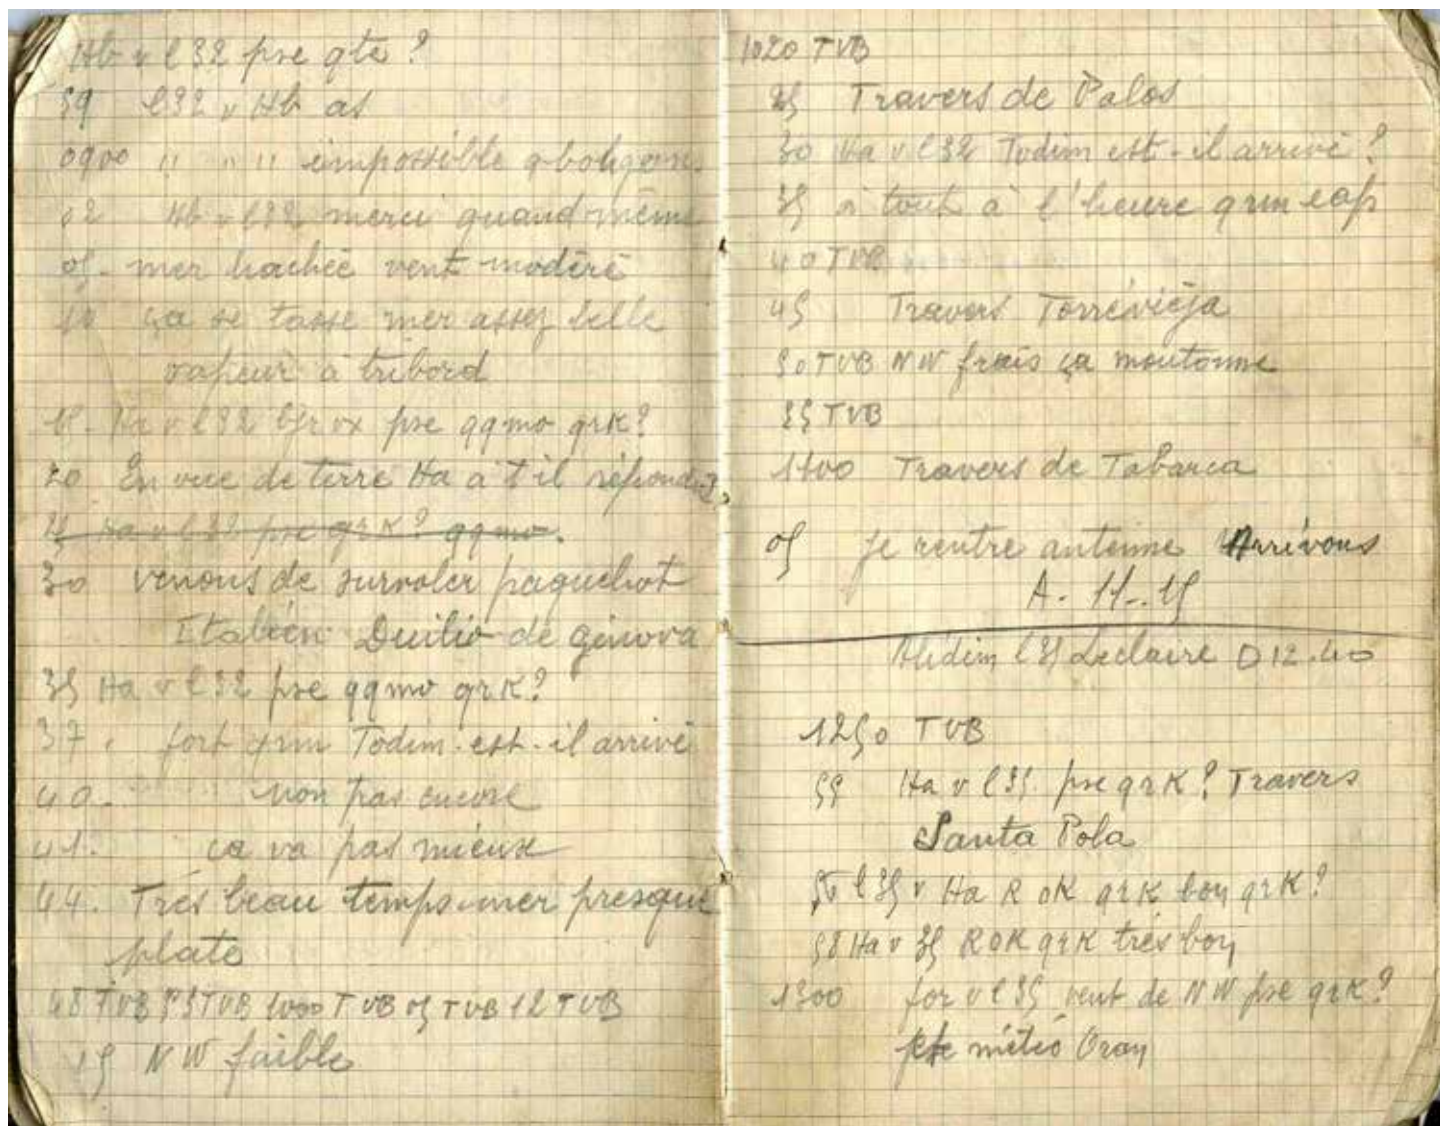 Hb v l32 pse qte ?
59 l32 v Hb as
0900 " " " impossible
02 Hb v l32 merci quand même
05. mer hachée vent modéré
10 ça se tasse mer assez belle
vapeur à tribord
Ha v l32 pse qqmo qrk?
20 En vue de terre Ha a t'il répondu ?
Ha v l32 pse qrk? qqmo.
30 venons de survoler paquebot
Italien Duilio de génova
35 Ha v l32 pse qqmo qrk?
37. fort qrm Todim. est-il arrivé
40. non pas encore
41. ca va pas mieux
44. Trés beau temps mer presque
plate
48 TVB 53 TVB 1000 TVB 05 TVB 12 TVB
15 NW faible
1020 TVB
25 Travers de Palos
30 Ha v l32 Todim est-il arrivé ?
35 à tout à l'heure qrm
40 TVB
45 Travers Torréviéja
50 TVB NW frais ça moutonne
55 TVB
1100 Travers de Tabarca
05 je rentre antenne Arrivons
A. 11..15
Alédim l35 Leclaire D 12.40
1250 TVB
55 Ha v l35 pse qrk? Travers
Santa Pola
56 l35 v Ha R OK qrk bon qrk?
58 Ha v 35 ROK qrk trés bon
1300 for v l35 vent de NW pse qrk?
pse météo Oran